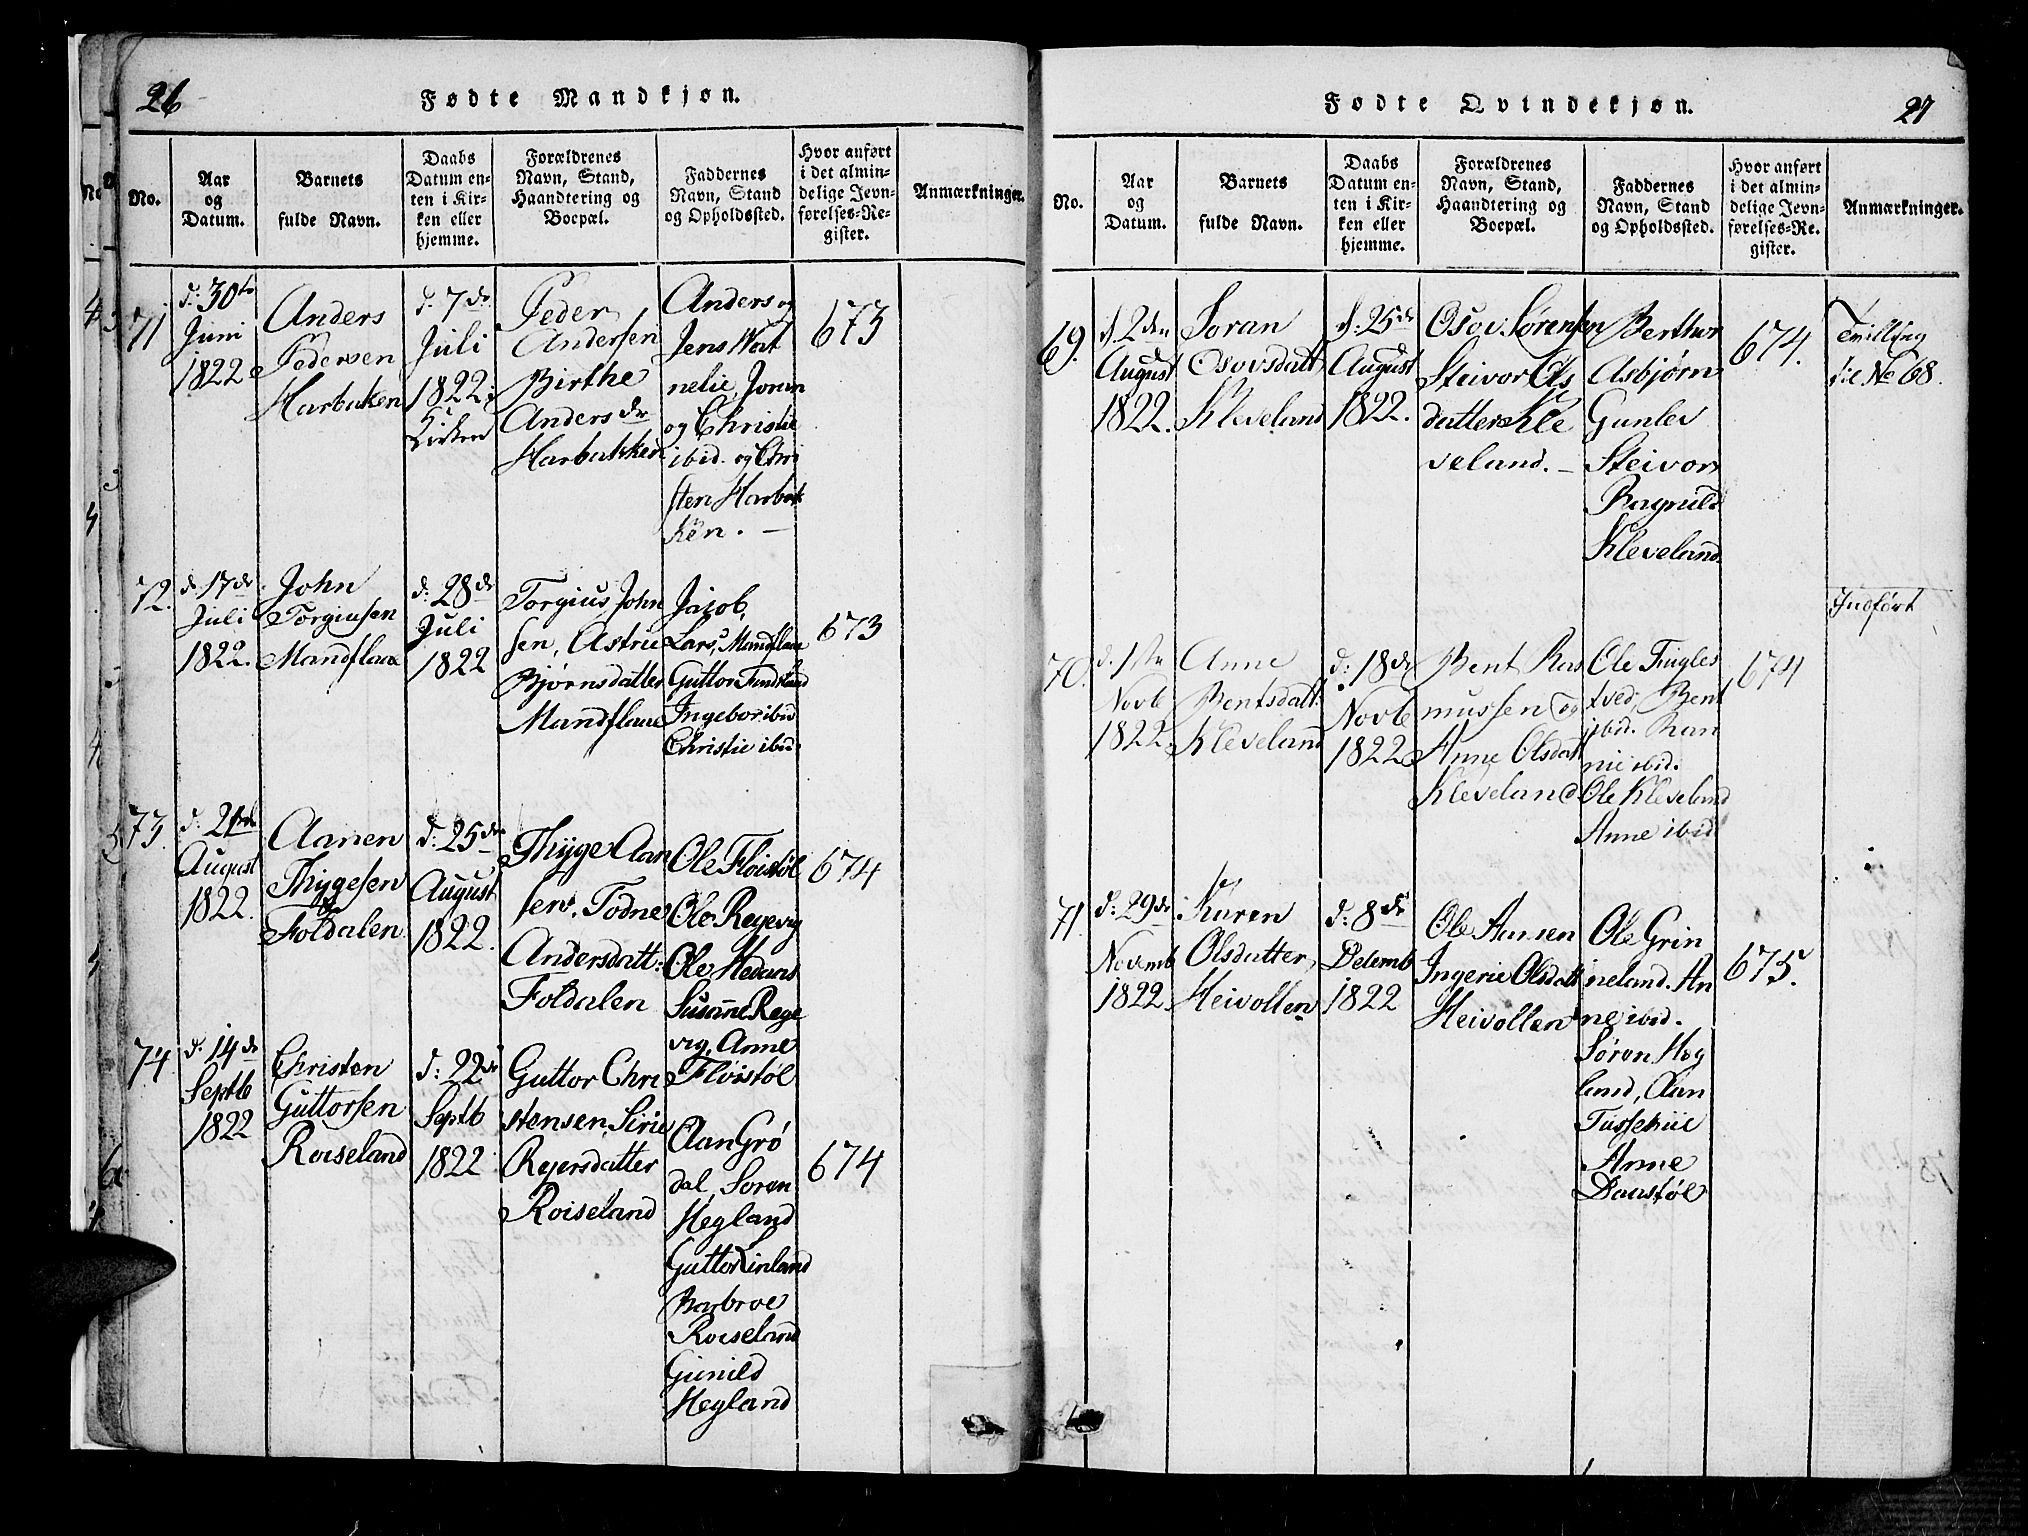 26
Fødte Mandkjøn.
No.
Aar
og
Datum.
Barnets
fulde Navn.
Daabs
Datum en-
ten i Kir-
ken eller
hjemme.
Forældrenes
Navn, Stand,
Haandtering og
Boepæl.
Faddernes
Navn, Stand
og Opholdssted.
Hvor anført
i det almin-
delige Jevn-
førelses-Re-
gister.
Anmærkninger.
71
d: 30te
Juni
1822
Anders
Pedersen
Harbakken
d: 7de
Juli
1822
Kirken
Peder
Andersen
Birthe
Anders dr
Harbakken
Anders og
Jens
nelie, Joran
og Christie
ibid. og Chri
sten Harbak
ken. —
673
72.
d: 17de
Juli
1822.
John
Torgiusen
Mandflaae
d: 28de
Juli
1822
Torgius John
sen, Astrie
Bjørnsdatter
Mandflaae
Jacob,
Lars, Mandflaae
Guttor
Ingebor ibid
Christie ibid.
673
73.
d: 21de
August
1822.
Aanen
Thygesen
Foldalen
d: 25de
August
1822.
Thyge Aan
sen. Todne
Andersdatt:
Foldalen
Ole Fløistøl
Ole Regevig
Ole Hedans
Susanne Rege
vig, Anne
Fløistøl
674
74.
d. 14de
Septb
1822
Christen
Guttorsen
Roiseland
d: 22de
Septb
1822
Guttor Chri
stensen Sirie
Reiersdatter
Roiseland
Aan Grø
dal, Soren
Hegland
Guttor Linland
Barbroe
Roiseland
Gunild
Hegland
674
Fødte Qvindekjøn.
27
No.
Aar
og
Datum.
Barnets
fulde Navn.
Daabs
Datum en-
ten i Kir-
ken eller
hjemme.
Forældrenes
Navn, Stand,
Haandtering og
Boepæl.
Faddernes
Navn, Stand
og Opholdssted.
Hvor anført
i det almin-
delige Jevn-
førelses-Re-
gister.
Anmærkninger.
69.
d 2den
August
1822.
Joran
Osovsdatt
Kleveland
d: 25de
August
1822.
Osov Sørensen
Steivor Ols
datter Kle
veland. —
Berthor
Asbjørn
Gunlev
Steivor
Ragnild
Kleveland
674.
Tvilling
til No 68.
Indført
70.
d. 1ste
Novb
1822.
Anne
Bentsdatt.
Kleveland
d: 18de
Novb
1822
Bent Ras
mussen og
Anne Olsdatt
Kleveland
Ole Tingles
tved, Bent
ibid. Ran
nie ibid.
Ole Kleveland
Anne ibid
674
71.
d: 29de
Novmb
1822.
Karen
Olsdatter
Heivollen
d: 8de
Decemb
1822
Ole Aansen
Ingerie Olsdatt
Heivollen
Ole Grin
neland. An
ne ibid.
Søren Heg
land, Aan
Anne
Daastøl
675.